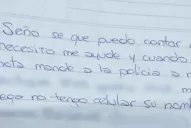 Seño se que puedo contar
necesito me ayude y cuando
mande a la policia a
m
no tengo celular su nom